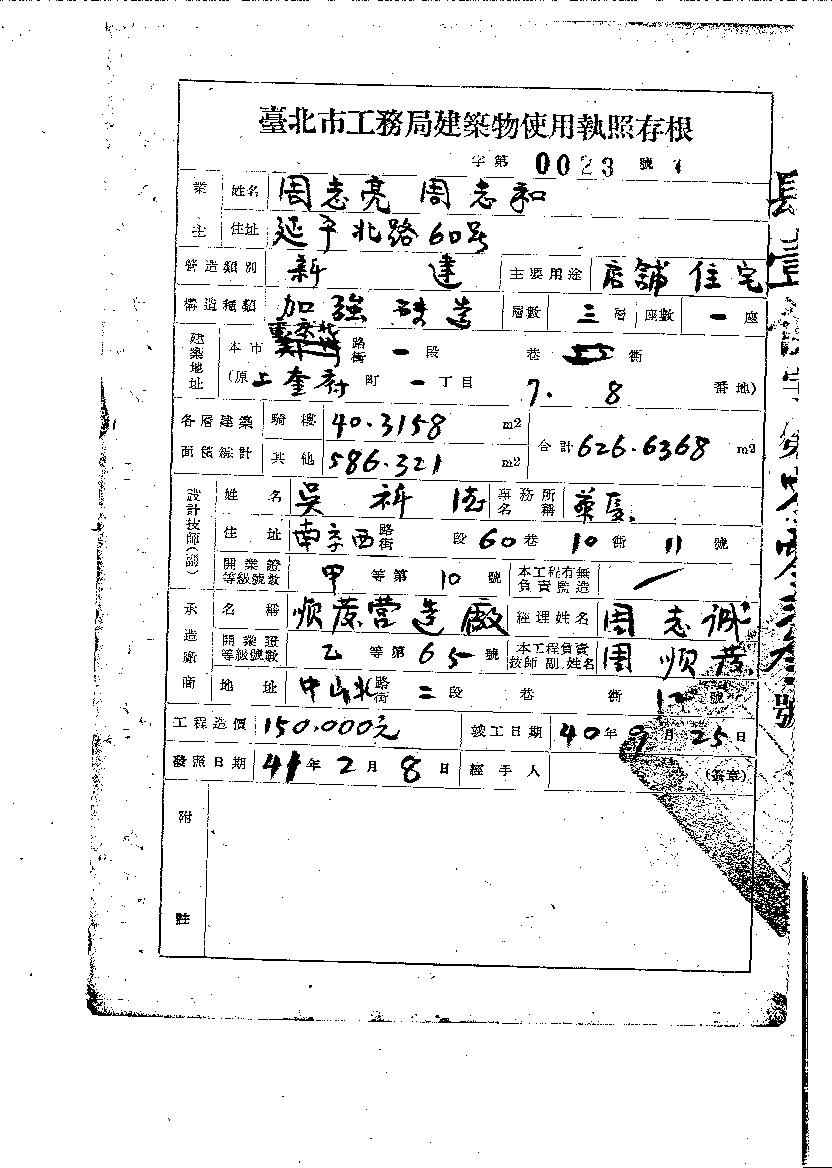 臺北市工務局建築物使用執照存根
字第 0023 號
業主 姓名 周志亮 周志和
住址 延平北路60號
營造類別 新建 主要用途 店舖住宅
構造種類 加強磚造 層數 三層 座數 一座
建築地址 本市 路街 一段 巷 衖
(原 上奎府町 一丁目 7. 8 番地)
各層建築面積総計 騎樓 40.3158 m2 合計 626.6368 m2
其他 586.321 m2
設計技師(副) 姓名 吳科 事務所名稱
住址 南京西路街 段 60巷 10衖 11號
開業證等級號數 甲等第10號 本工程有無負責監造 /
承造廠商 名稱 順茂營造廠 經理姓名 周志誠
開業證等級號數 乙等第65號 本工程負責技師副姓名 周順茂
地址 中山北路街 二段 巷 衖 號
工程造價 150.000元 竣工日期 40年9月25日
發照日期 41年2月8日 經手人 (簽章)
附註